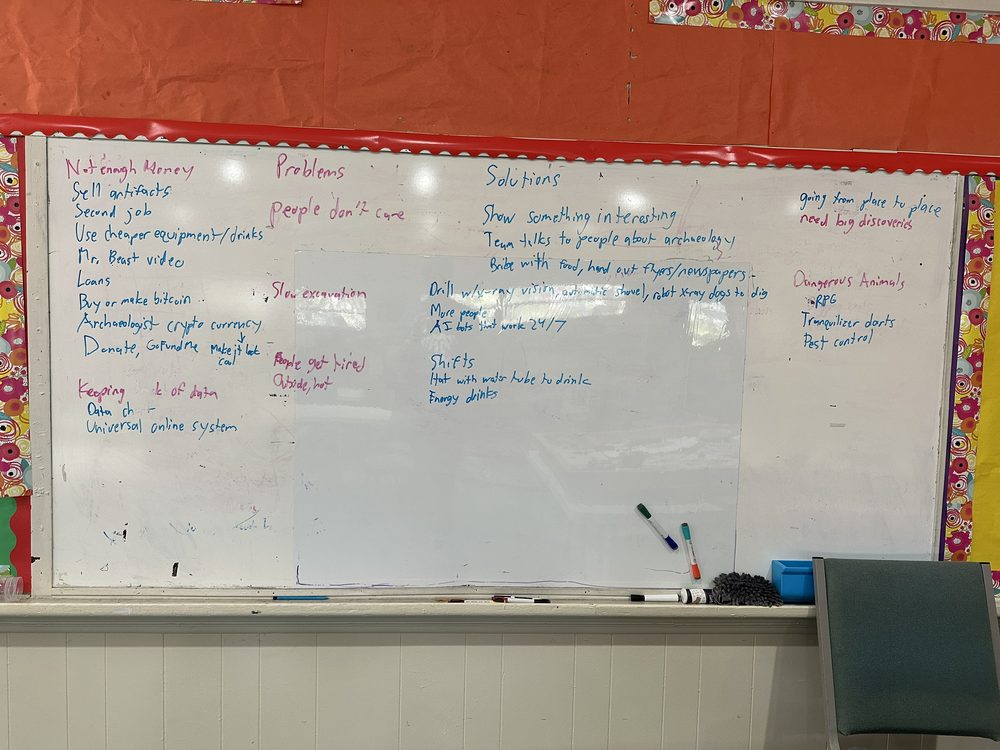 Not enough Money
Sell artifacts
Second job
Use cheaper equipment/drinks
Mr. Beast video
Loans
Buy or make bitcoin
Archaeologist crypto currency
Donate, GoFundMe Make it look
cool
Keeping k of data
Data ch
Universal online system
Problems
People don't care
Slow excavation
People get tired
Outside, hot
Solutions
Show something interesting
Team talks to people about archaeology
Bribe with food, hand out flyers/newspapers
Drill w/x-ray vision, automatic shovel, robot x-ray dogs to dig
More people
AI bots that work 24/7
Shifts
Hat with water tube to drink
Energy drinks
going from place to place
need big discoveries
Dangerous Animals
RPG
Tranquilizer darts
Pest control